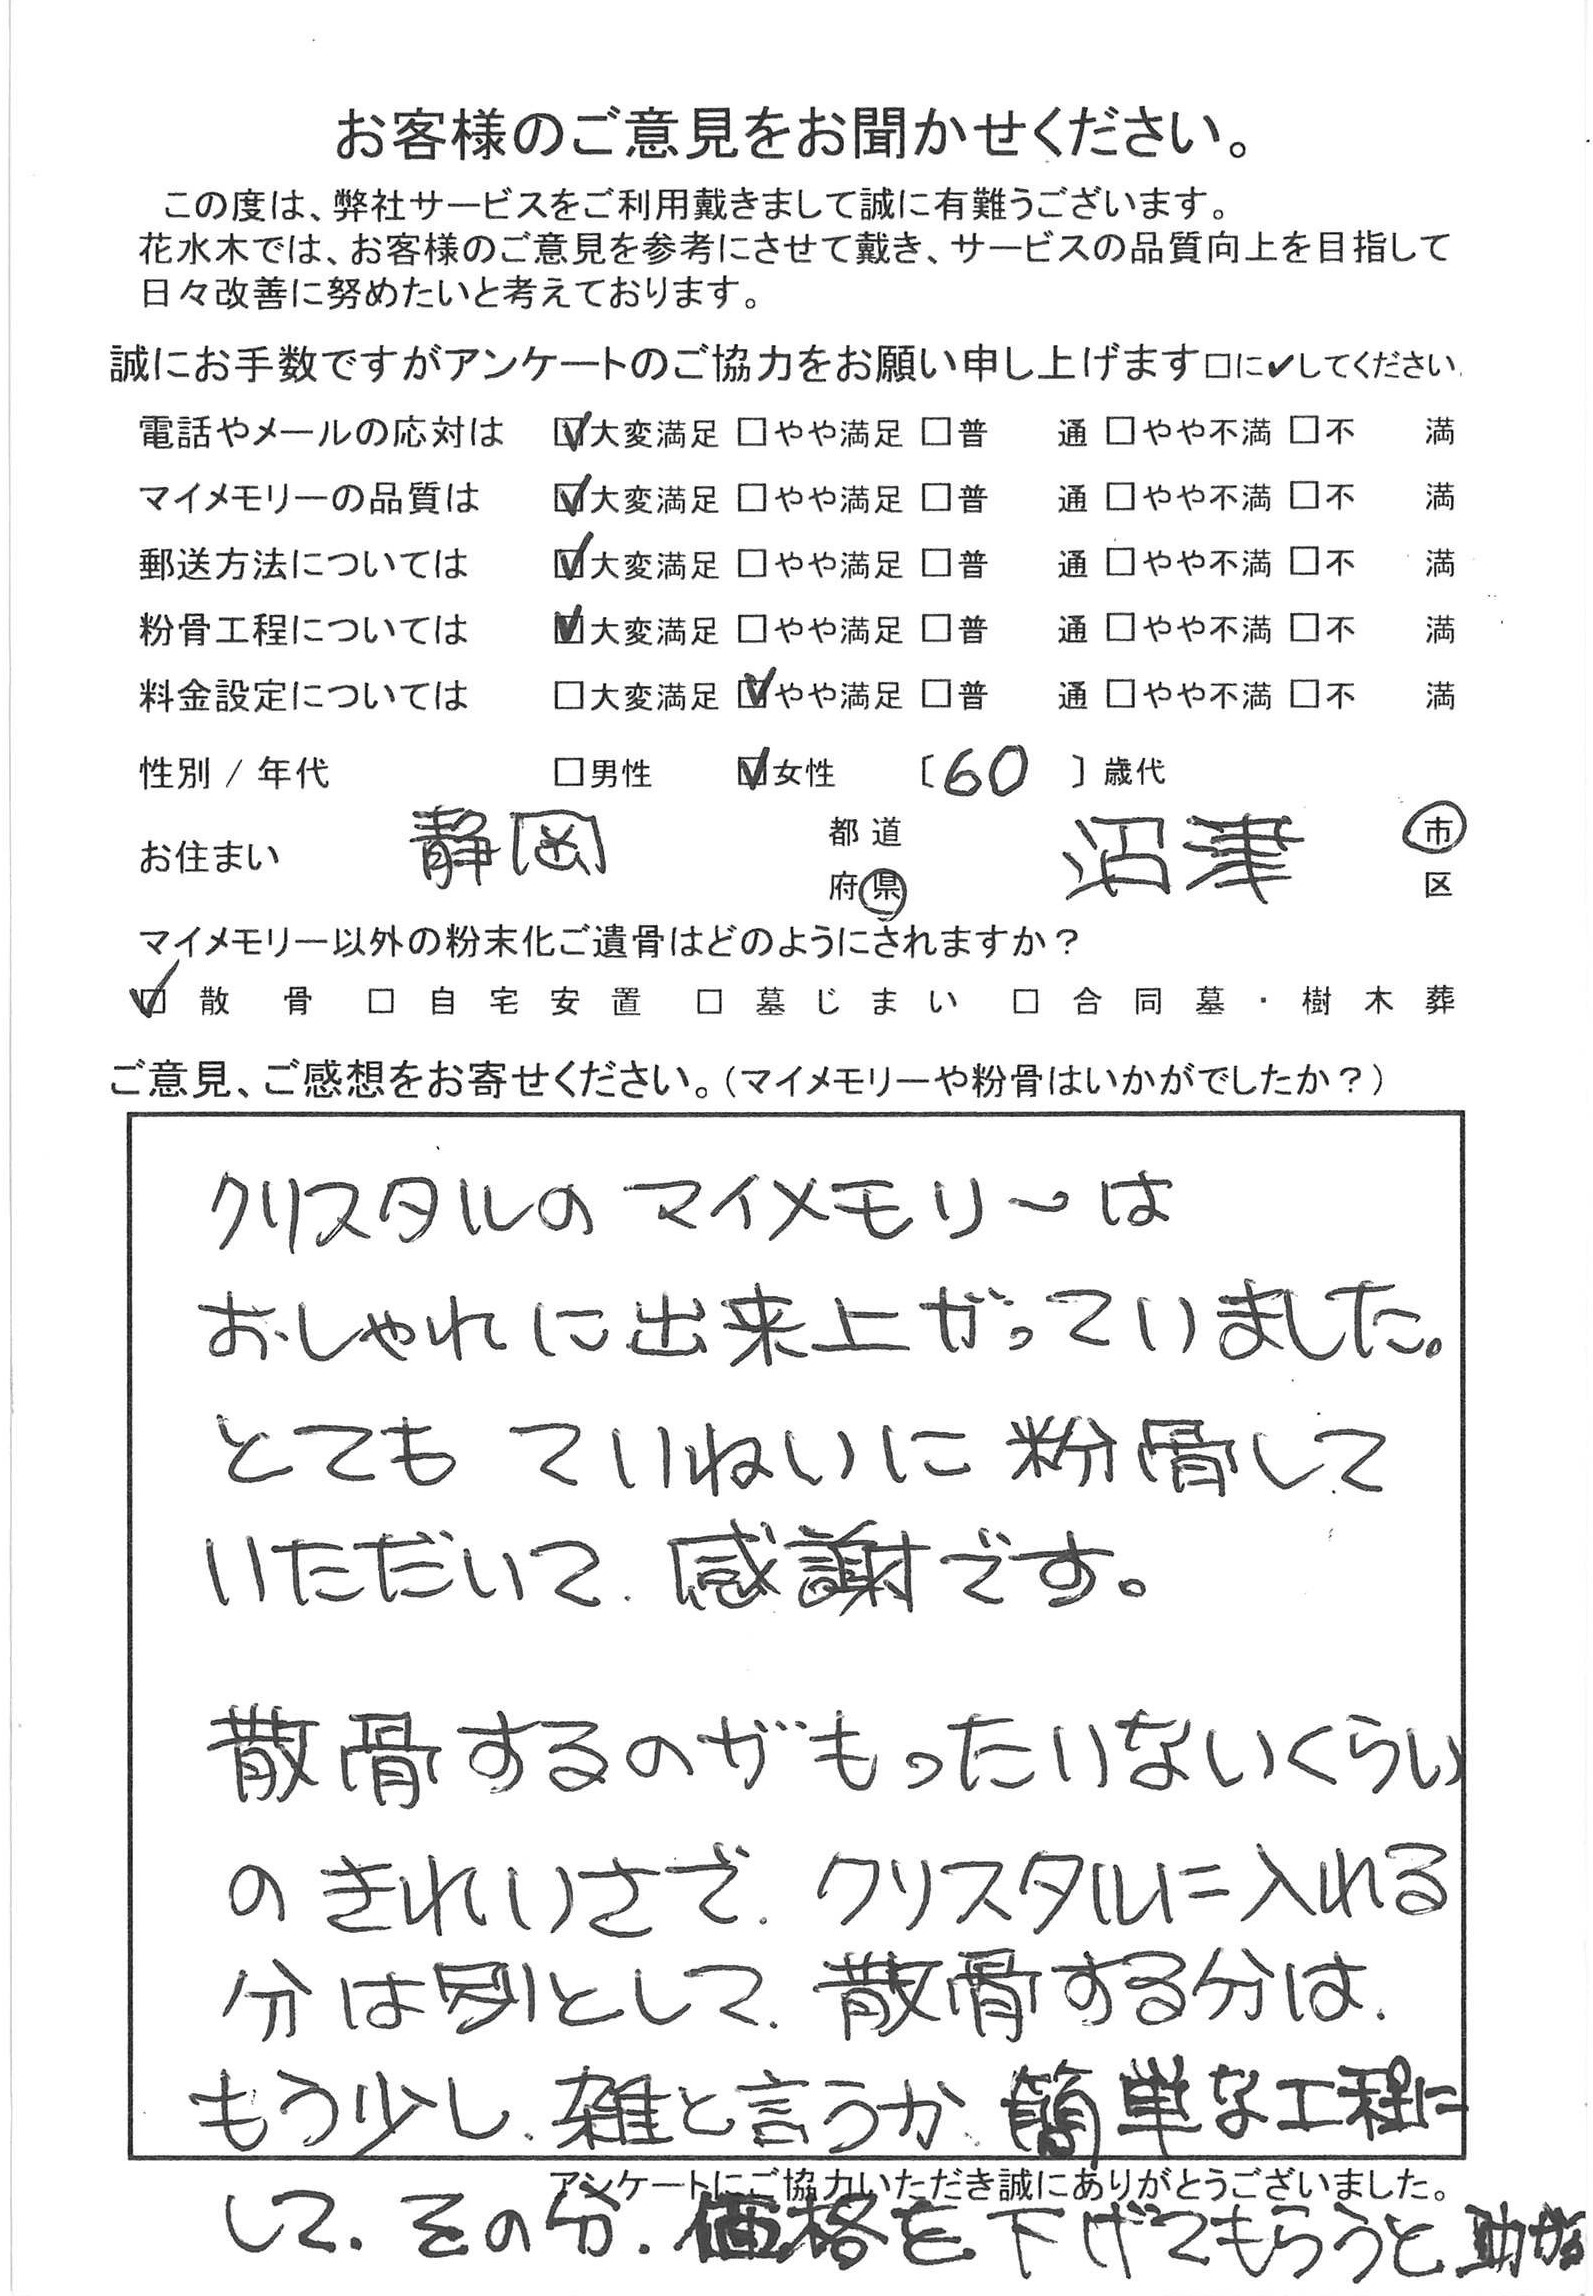 お客様のご意見をお聞かせください。
この度は、弊社サービスをご利用戴きまして誠に有難うございます。
花水木では、お客様のご意見を参考にさせて戴き、サービスの品質向上を目指して
日々改善に努めたいと考えております。
誠にお手数ですがアンケートのご協力をお願い申し上げます□に✔してください.
電話やメールの応対は ☑大変満足 □やや満足 □普 通 □やや不満 □不 満
マイメモリーの品質は ☑大変満足 □やや満足 □普 通 □やや不満 □不 満
郵送方法については ☑大変満足 □やや満足 □普 通 □やや不満 □不 満
粉骨工程については ☑大変満足 □やや満足 □普 通 □やや不満 □不 満
料金設定については □大変満足 ☑やや満足 □普 通 □やや不満 □不 満
性別 / 年代 □男性 ☑女性 〔60〕歳代
お住まい 静岡 都道府県 沼津 市区
マイメモリー以外の粉末化ご遺骨はどのようにされますか？
☑ 散骨 □ 自宅安置 □ 墓じまい □ 合同墓・樹木葬
ご意見、ご感想をお寄せください。（マイメモリーや粉骨はいかがでしたか？）
クリスタルのマイメモリーは
おしゃれに出来上がっていました。
とてもていねいに粉骨して
いただいて、感謝です。
散骨するのがもったいないくらい
のきれいさで、クリスタルに入れる
分は別として、散骨する分は、
もう少し、雑と言うか、簡単な工程に
アンケートにご協力いただき誠にありがとうございました。
して、その分、価格を下げてもらうと助かる